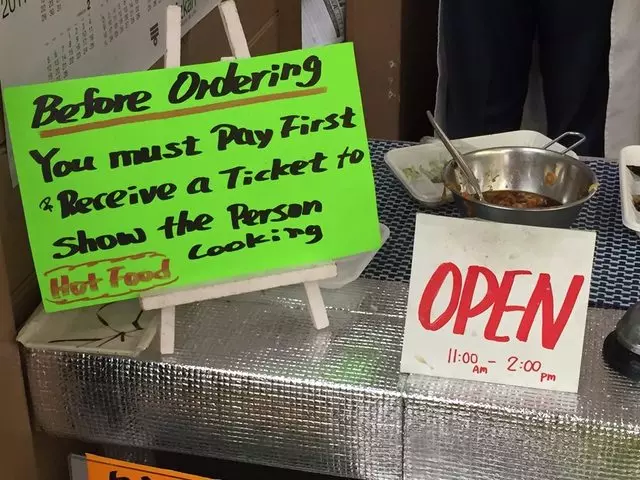 Before Ordering
You must Pay First
& Receive a Ticket to
Show the Person
Cooking
Hot Food
OPEN
11:00 AM - 2:00 PM